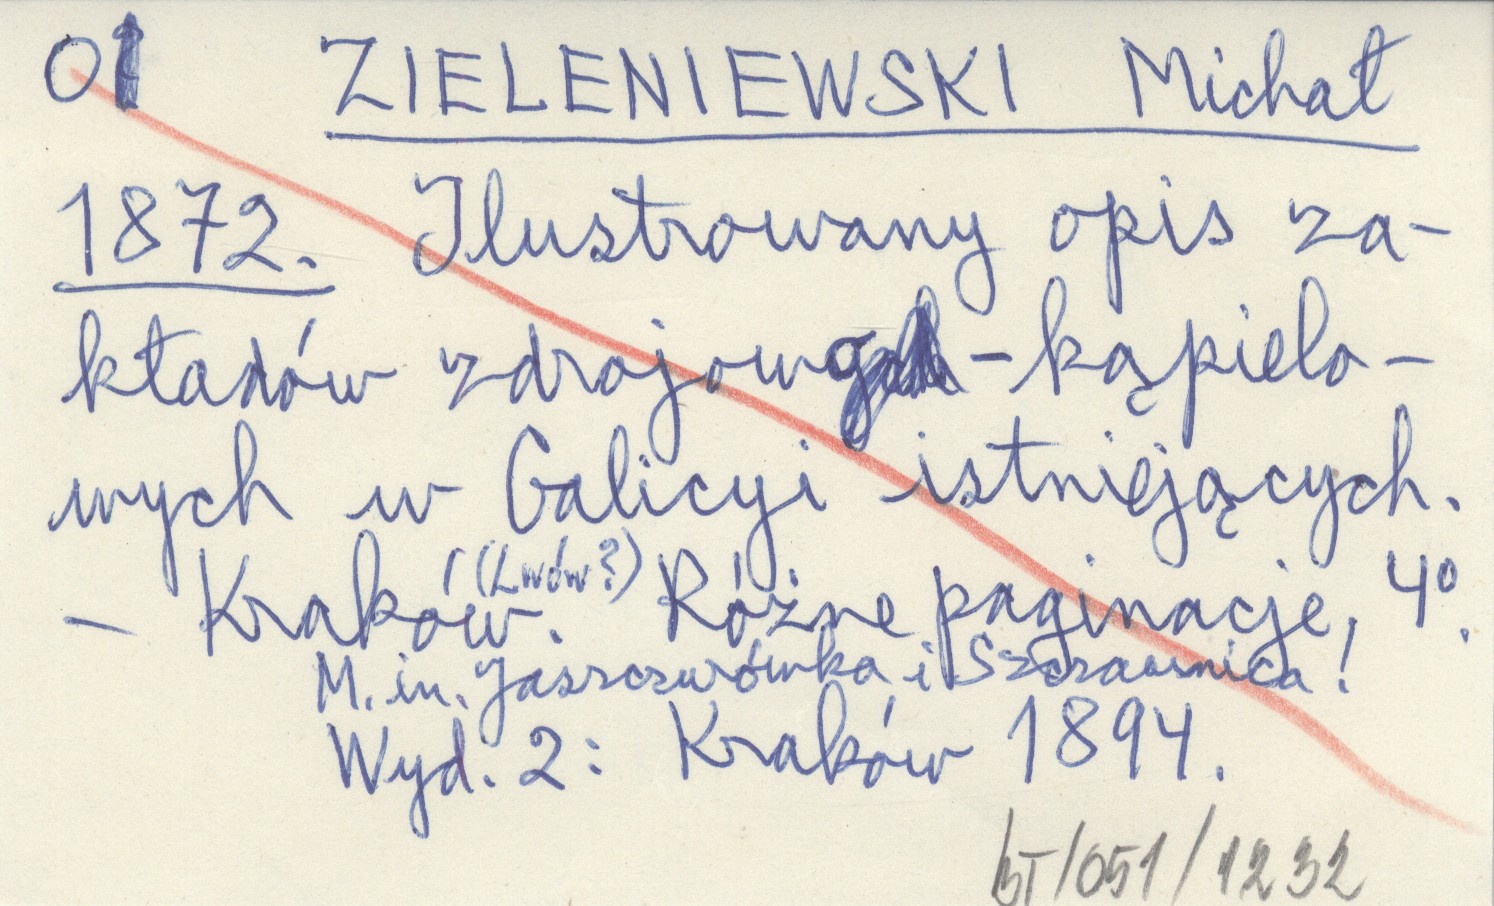 01 ZIELENIEWSKI Michał
1872. Ilustrowany opis za-
kładów zdrojowo-kąpielo-
wych w Galicyi istniejących.
- Kraków. (Lwów?) Różne paginacje, 4º.
M. in. Jaszczurówka i Szczawnica!
Wyd. 2: Kraków 1894.
BT/051/1232